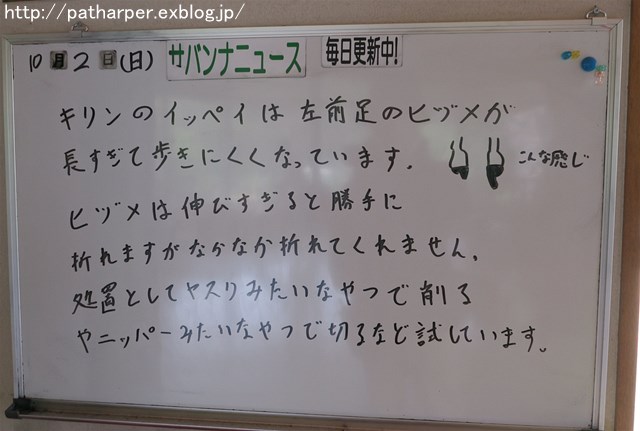 http://patharper.exblog.jp/
10月2日(日) サバンナニュース 毎日更新中!
キリンのイッペイは左前足のヒヅメが
長すぎて歩きにくくなっています。
こんな感じ
ヒヅメは伸びすぎると勝手に
折れますがなかなか折れてくれません。
処置としてヤスリみたいなやつで削る
やニッパーみたいなやつで切るなど試しています。